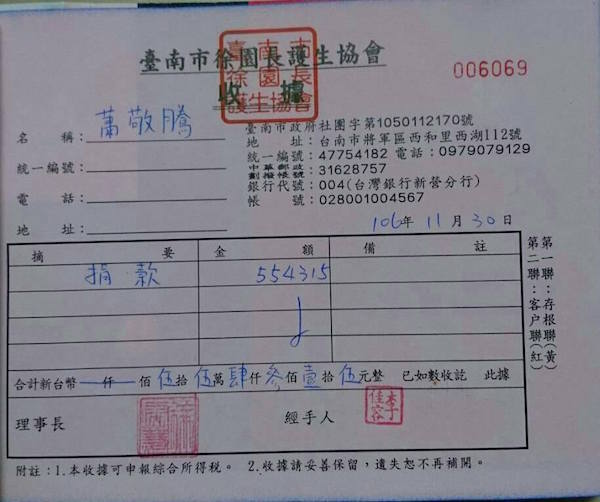 臺南市徐園長護生協會
收據
臺南市徐園長護生協會
006069
名稱：蕭敬騰
統一編號：
電話：
地址：
臺南市政府社團字第1050112170號
地址：台南市將軍區西和里西湖112號
統一編號：47754182 電話：0979079129
中華郵政劃撥帳號：31628757
銀行代號：004(台灣銀行新營分行)
帳號：028001004567
106年11月30日
摘要 金額 備註
捐款 554315
合計新台幣 仟 佰伍拾伍萬肆仟參佰壹拾伍元整 已如數收訖 此據
理事長 經手人
李佳容
附註：1.本收據可申報綜合所得稅。 2.收據請妥善保留，遺失恕不再補開。
第一聯：存根聯(黃)
第二聯：客戶聯(紅)